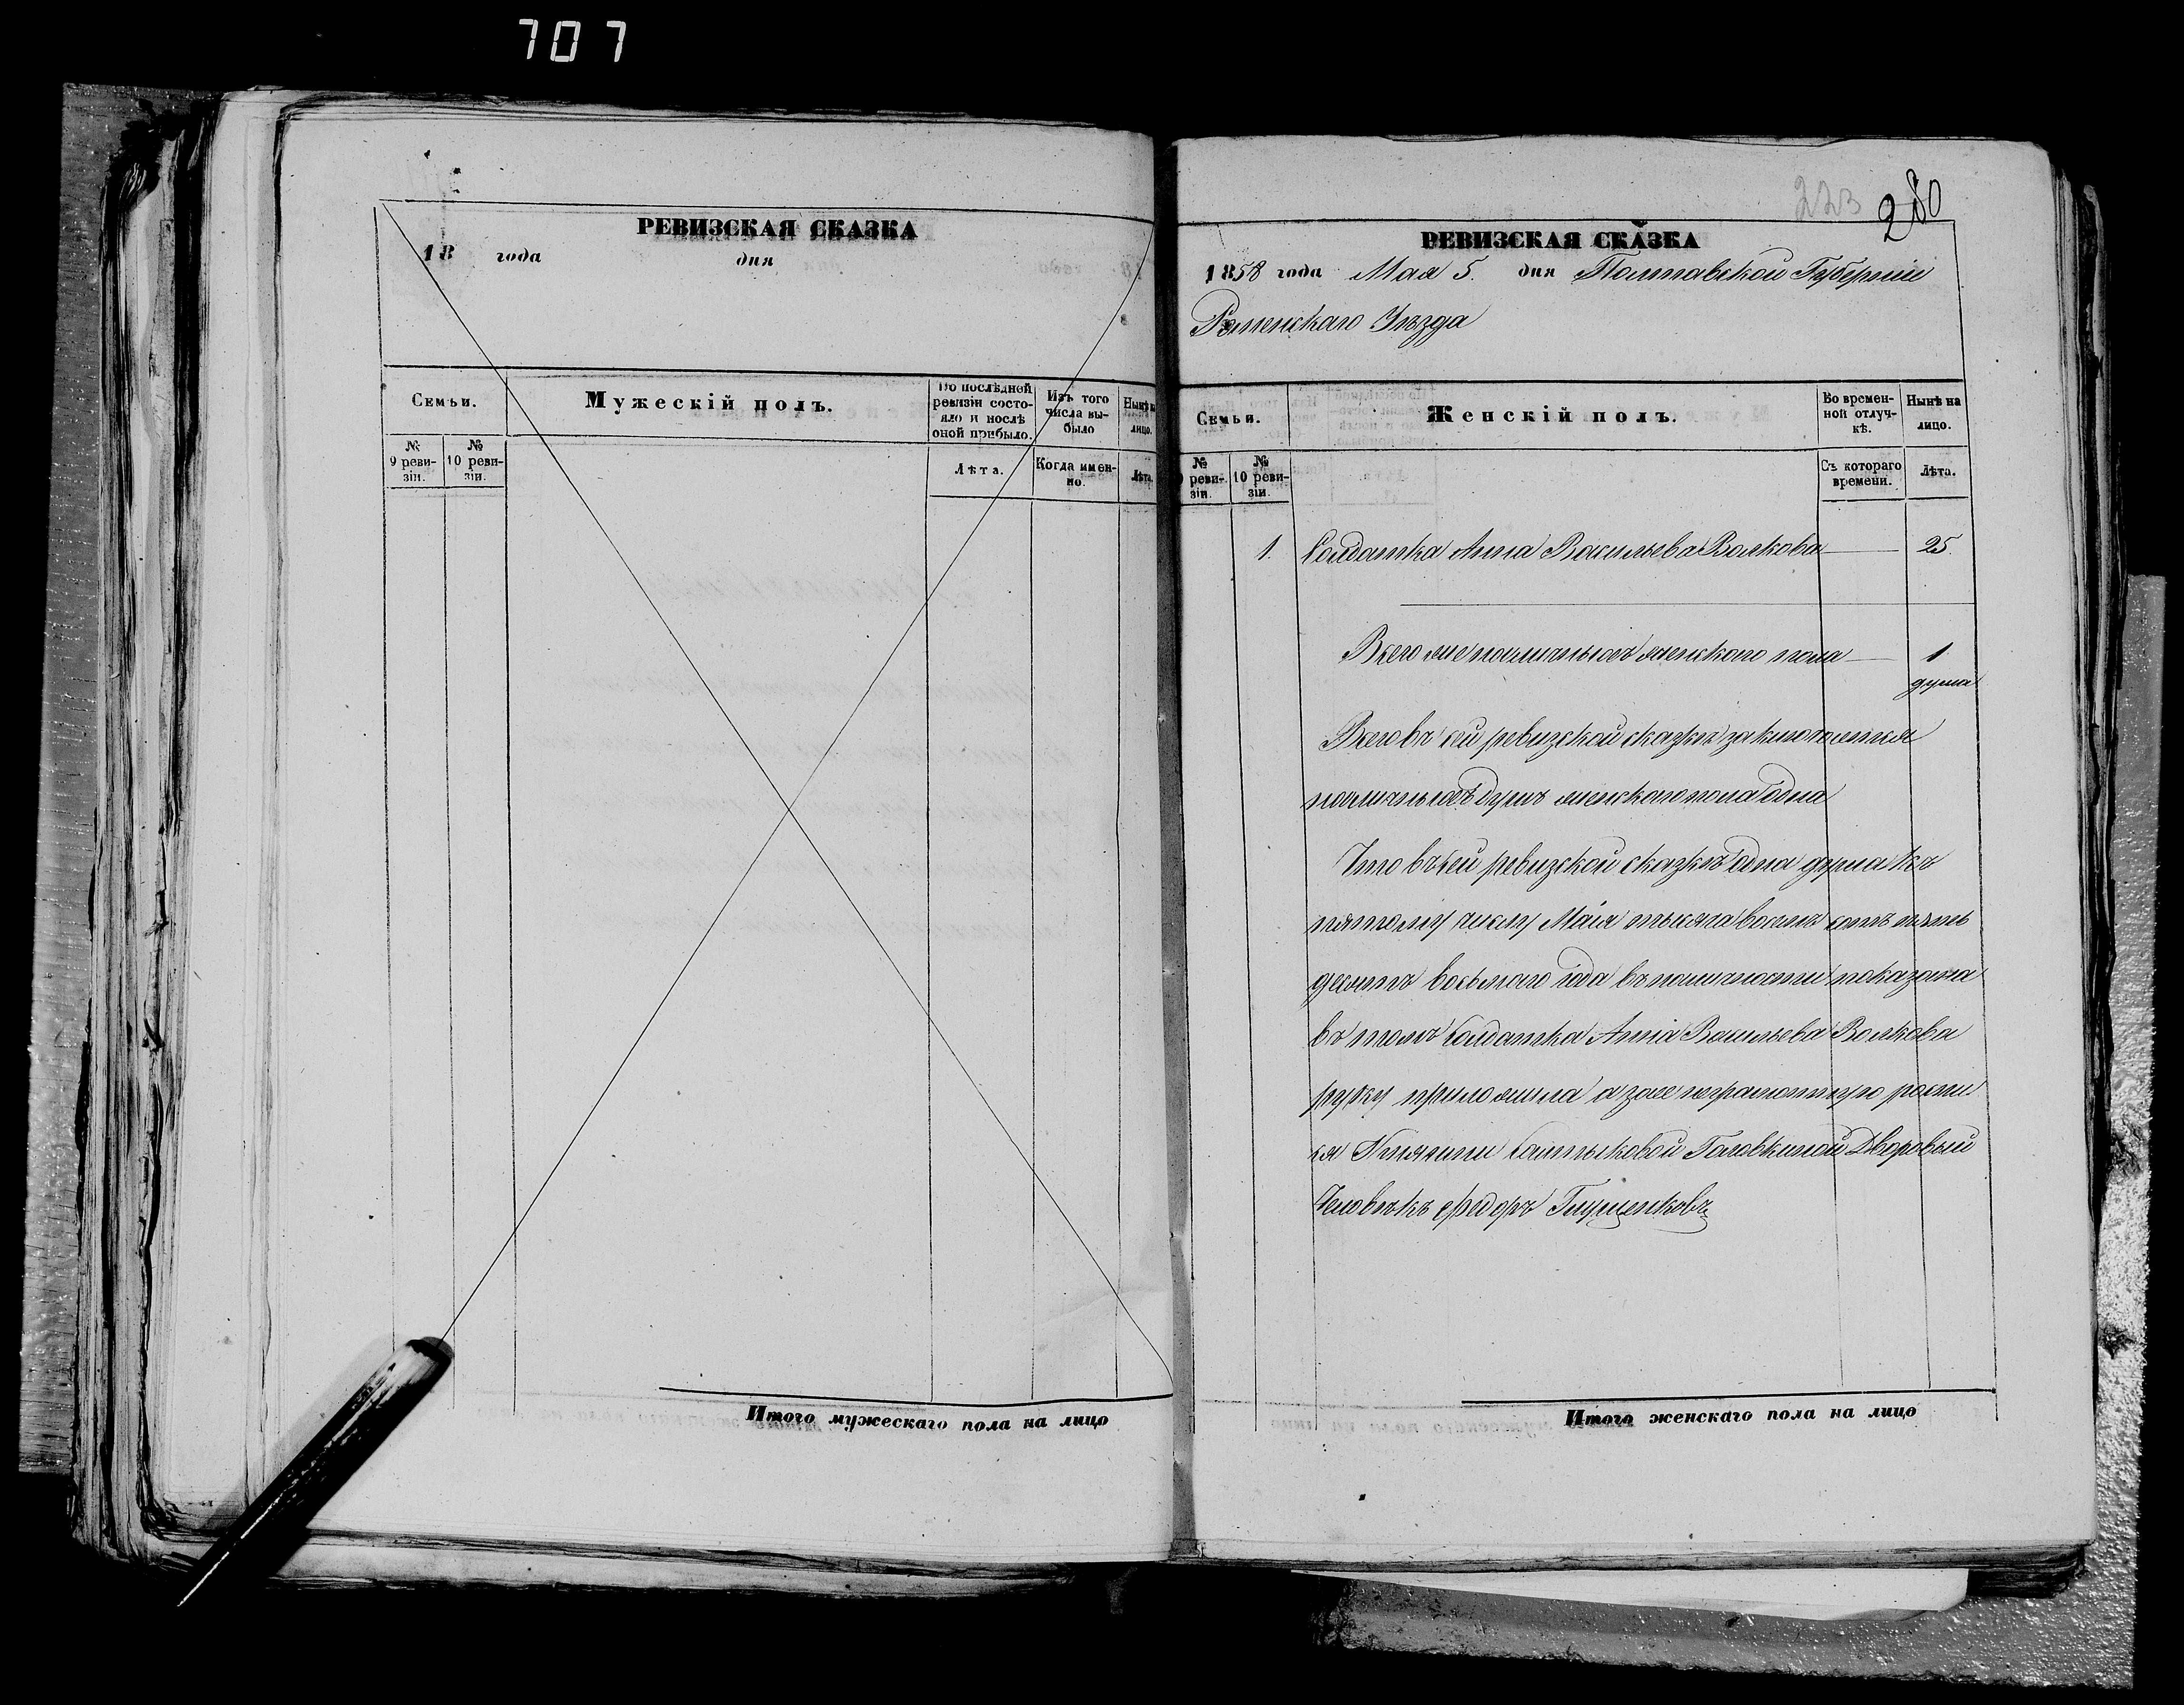 707
РЕВИЗСКАЯ СКАЗКА
18 года дня
Семьи.
Мужескій полъ.
По послѣдней ревизіи состояло и послѣ оной прибыло.
Изъ того числа выбыло
Нынѣ на лицо.
№ 9 ревизіи.
№ 10 ревизіи.
Лѣта.
Когда именно.
Лѣта.
Итого мужескаго пола на лицо
223 280
РЕВИЗСКАЯ СКАЗКА
1858 года Мая 5. дня Полтавской Губерніи
Роменскаго Уѣзда
Семьи.
Женскій полъ.
Во временной отлучкѣ.
Нынѣ на лицо.
№ ревизіи.
№ 10 ревизіи.
Съ котораго времени.
Лѣта.
1. Солдатка Анна Васильева Волкова 25.
Всего же наличныхъ женского пола 1
душа
Всего въ сей ревизской сказкѣ заключается
наличныхъ душъ женского пола одна
Что въ сей ревизской сказкѣ одна душа къ
пятому числу Маія тысяча восемь сотъ пять
десятъ восьмого года въ наличности показана
въ томъ Солдатка Анна Васильева Волкова
руку приложила а за нее неграмотную росписа
ся Княгини Салтыковой Головкиной Дворовый
Человѣкъ Федоръ Глущенковъ
Итого женскаго пола на лицо